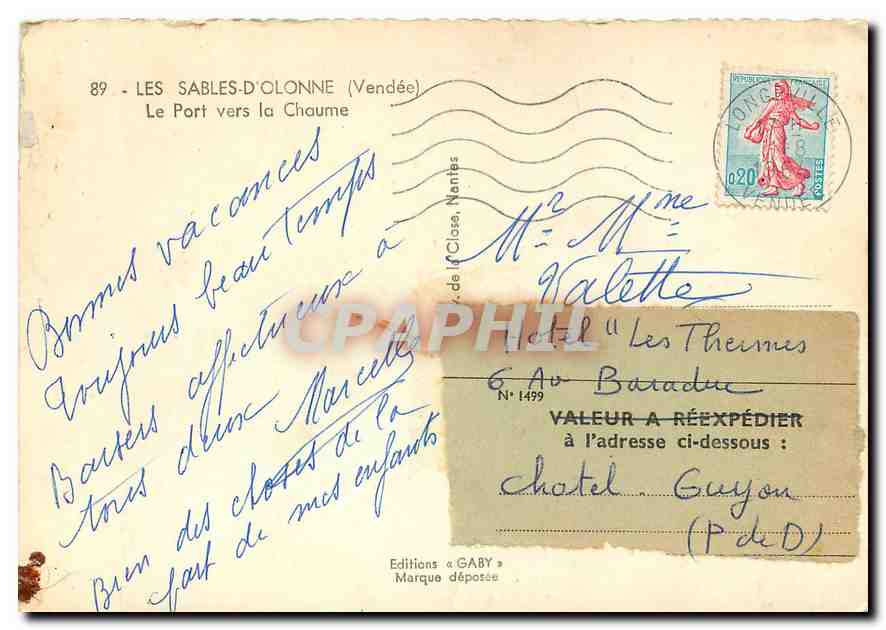 89 - LES SABLES-D'OLONNE (Vendée)
Le Port vers la Chaume
Bonnes vacances
Toujours beau Temps
Baisers affectueux à
tous deux Marcelle
Bien des choses de la
part de mes enfants
Editions « GABY »
Marque déposée
. de la Close, Nantes
REPUBLIQUE FRANÇAISE
0.20
POSTES
LONGEVILLE
VENDÉE
Mr Mme
Valette
Hotel "Les Thermes
6 Av Baraduc
N° 1499
VALEUR A RÉEXPÉDIER
à l'adresse ci-dessous :
Chatel-Guyon
(P de D)
CPAPHIL